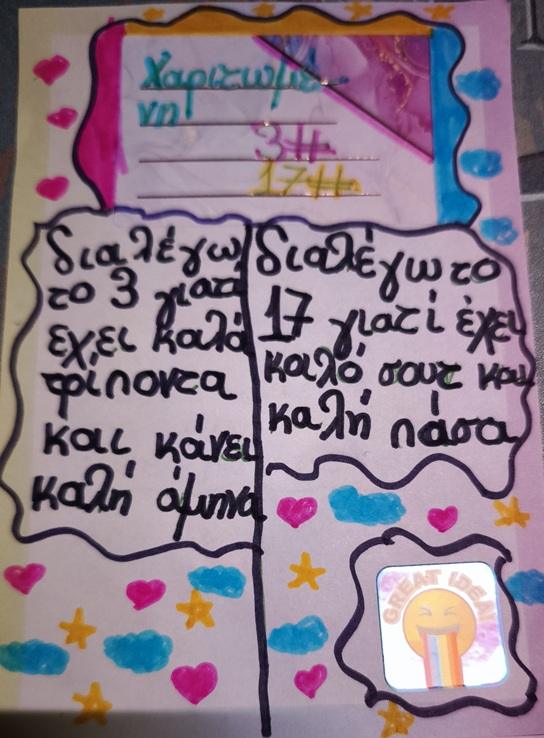 Χαριτωμέ
νη
3#
17#
διαλέγω
το 3 γιατί
έχει καλά
τρίποντα
και κάνει
καλή άμηνα
διαλέγω το
17 γιατί έχει
καλό σουτ και
καλή πάσα
GREAT IDEA!